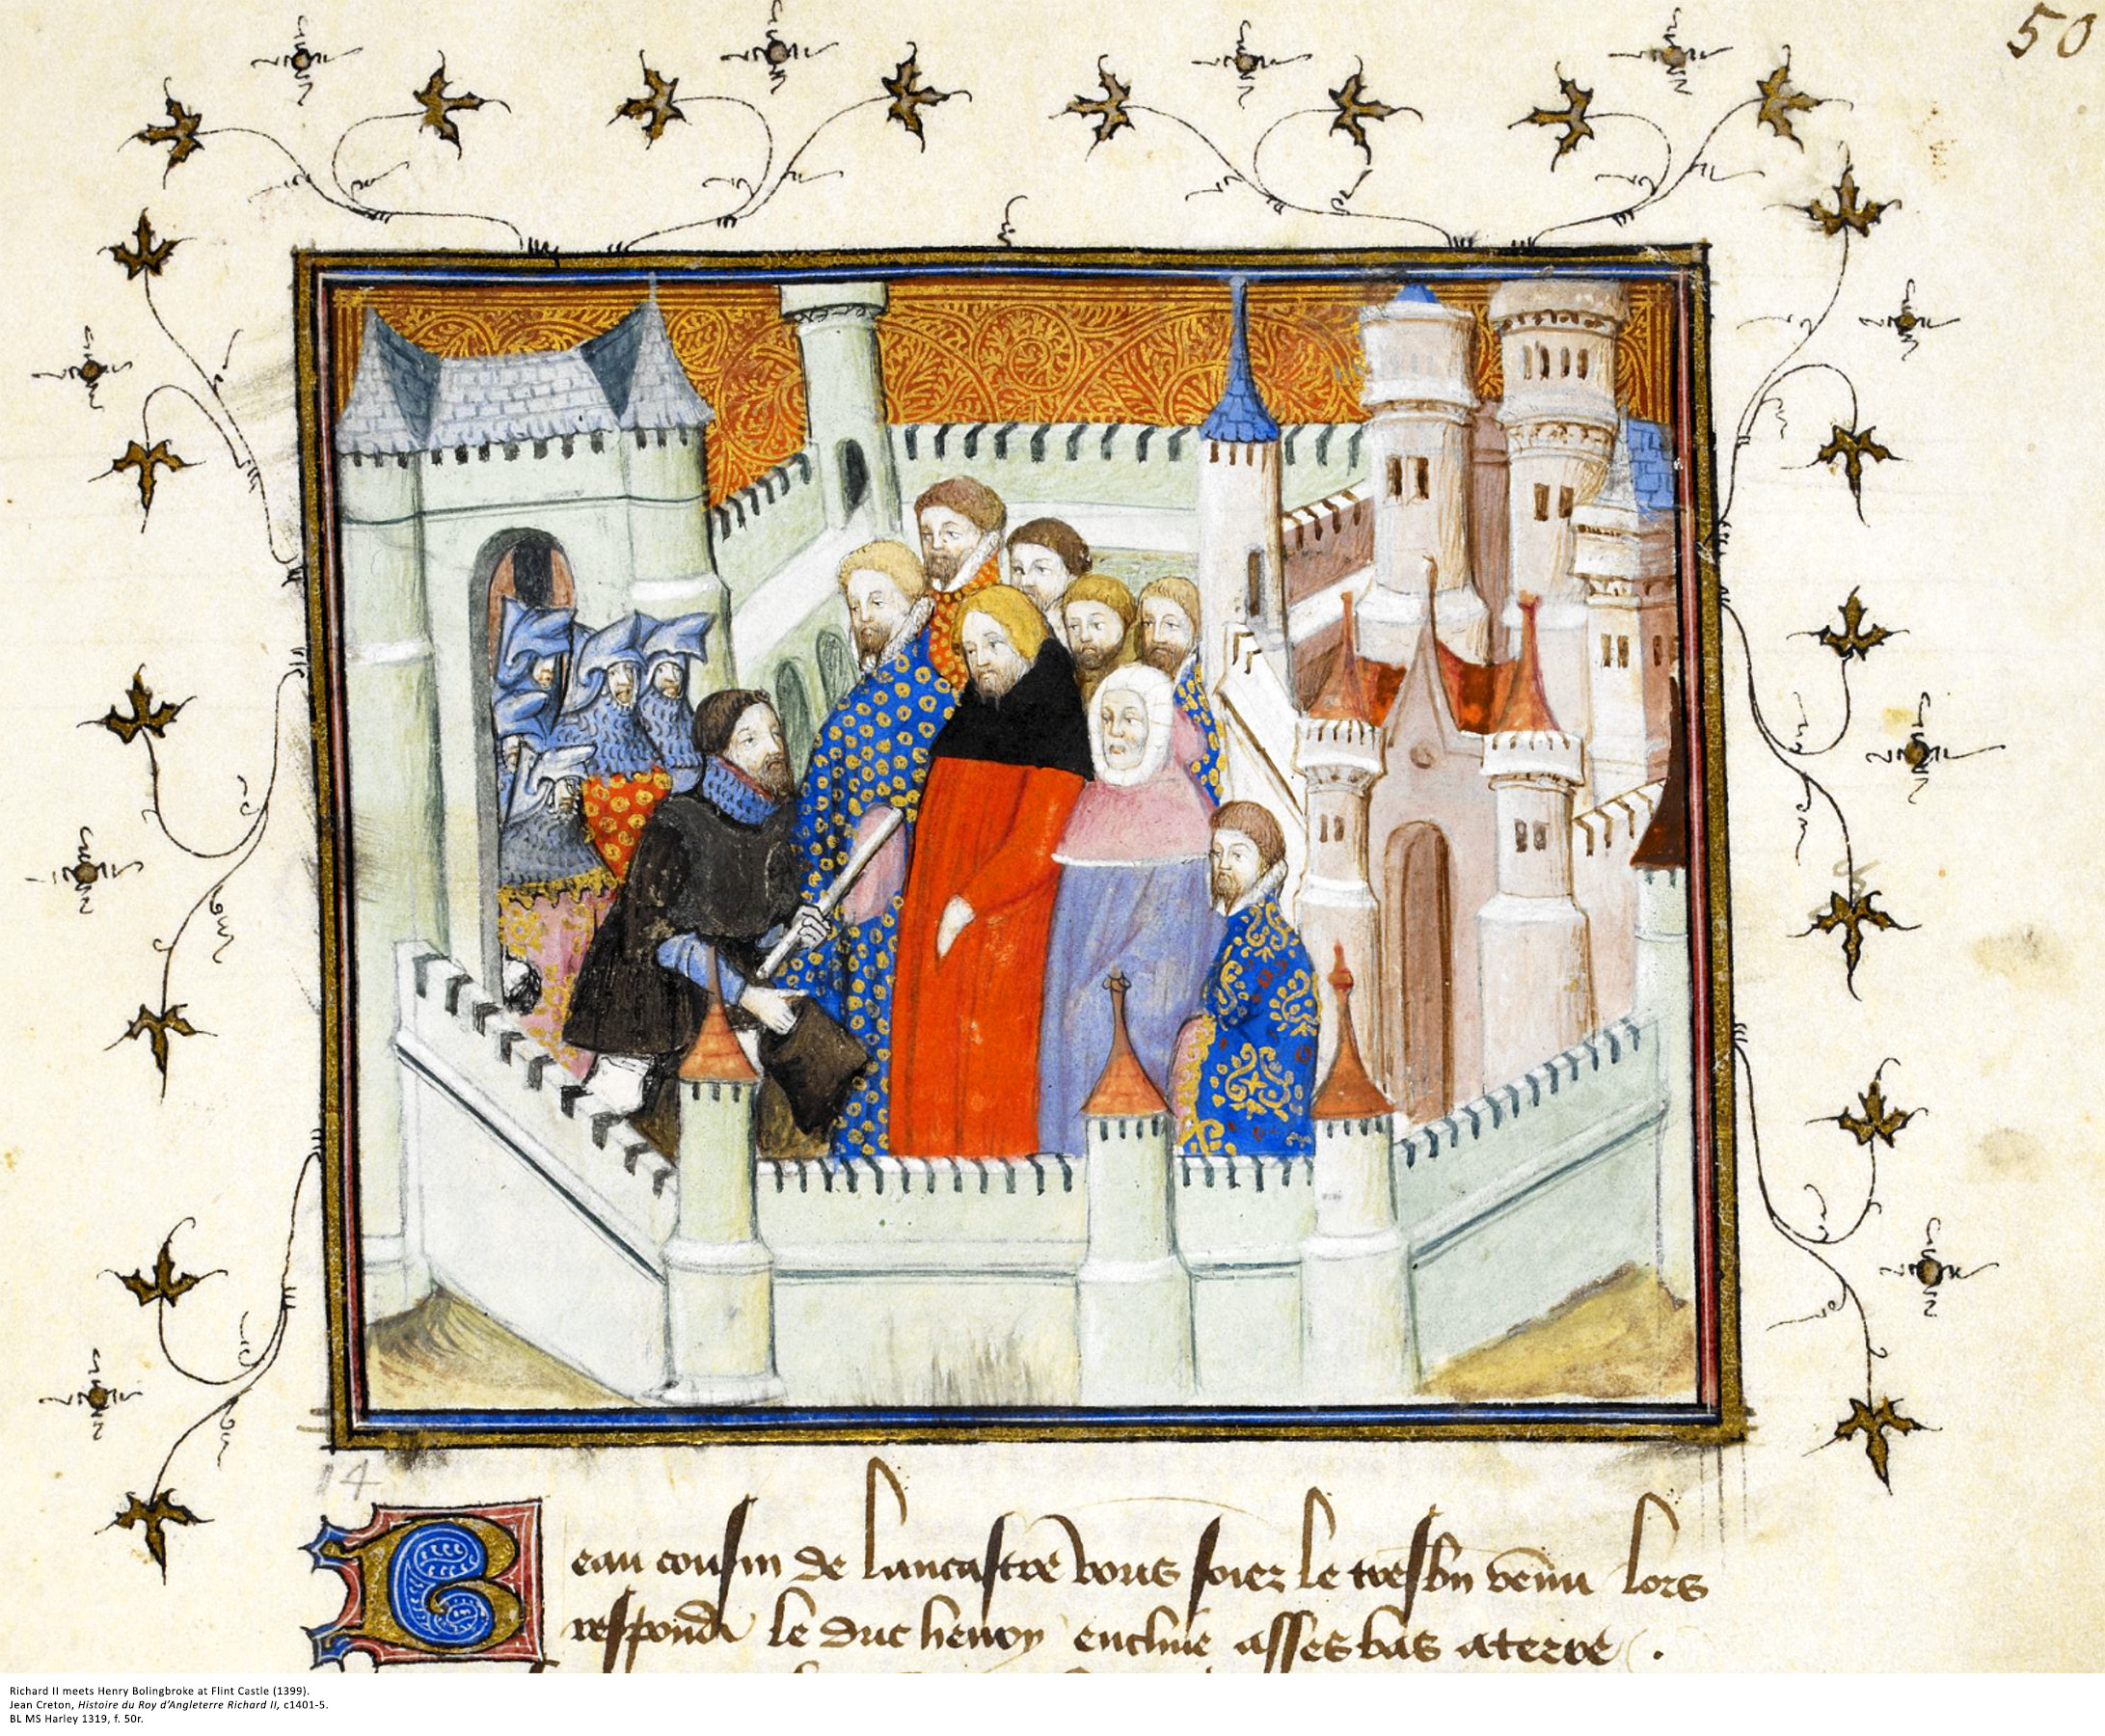 50
14
Beau cousin de lancastre vous soiez le tresbn venu lors
respondi le duc henry encline asses bas a terre .
Richard II meets Henry Bolingbroke at Flint Castle (1399).
Jean Creton, Histoire du Roy d’Angleterre Richard II, c1401-5.
BL MS Harley 1319, f. 50r.